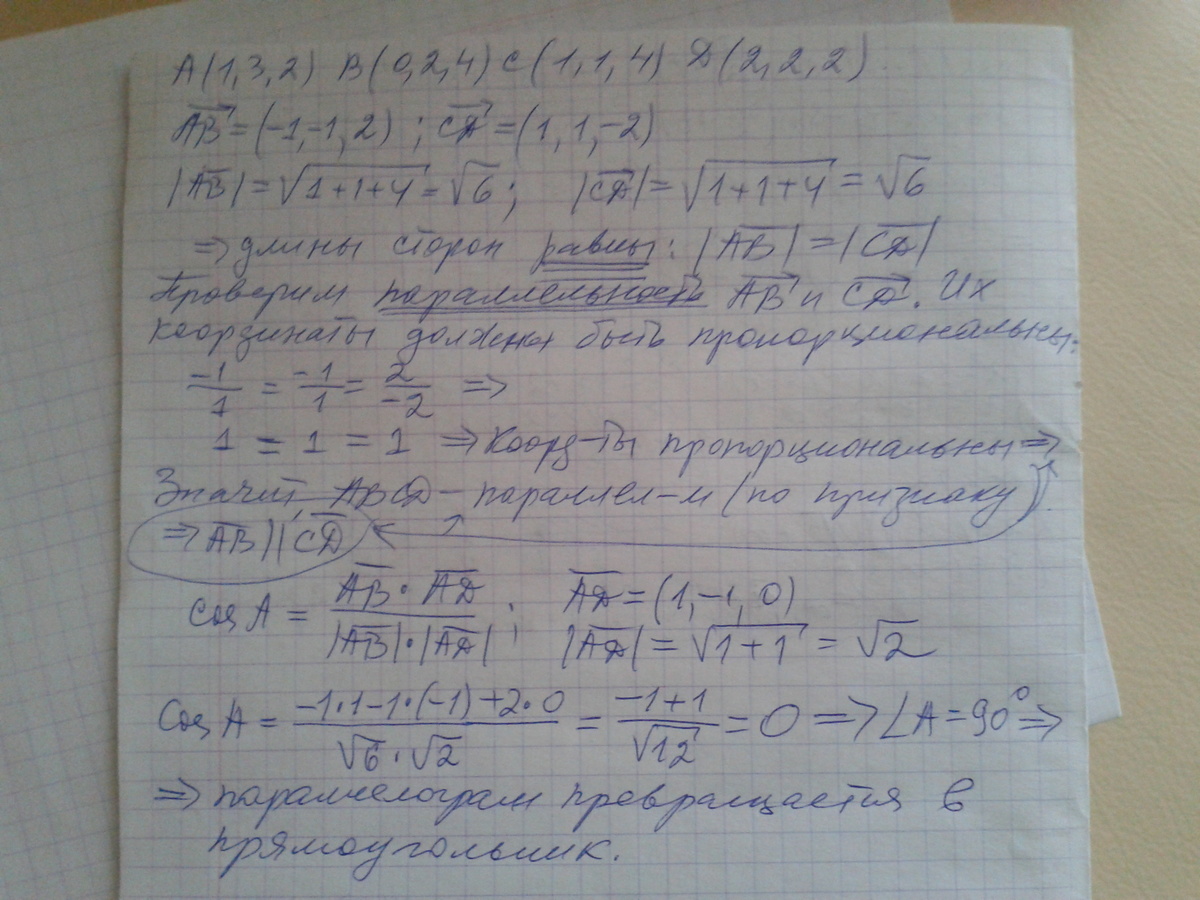 A(1,3,2) B(0,2,4) C(1,1,4) D(2,2,2)
AB = (-1,-1,2) ; CD = (1, 1, -2)
|AB| = √1+1+4 = √6 ; |CD| = √1+1+4 = √6
⇒ длины сторон равны: |AB| = |CD|
Проверим параллельность AB и CD. Их
координаты должны быть пропорциональны:
-1/1 = -1/1 = 2/-2 ⇒
1 = 1 = 1 ⇒ Коорд-ты пропорциональны ⇒
Значит, ABCD - параллел-м (по признаку)
⇒ AB || CD
Cos A = AB · AD / |AB| · |AD| ; AD = (1, -1, 0)
|AD| = √1+1 = √2
Cos A = -1·1-1·(-1)+2·0 / √6 · √2 = -1+1 / √12 = 0 ⇒ ∠A = 90° ⇒
⇒ параллелограм превращается в
прямоугольник.